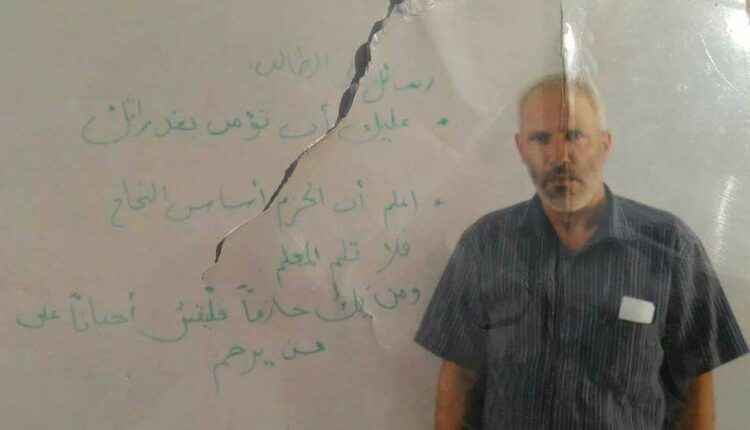 رسائل إلى الطالب
• عليك أن تؤمن بقدراتك
• اعلم أن الحزم أساس النجاح
فلا تلم المعلم
ومن يك حازماً فليقسُ أحياناً على
من يرحم